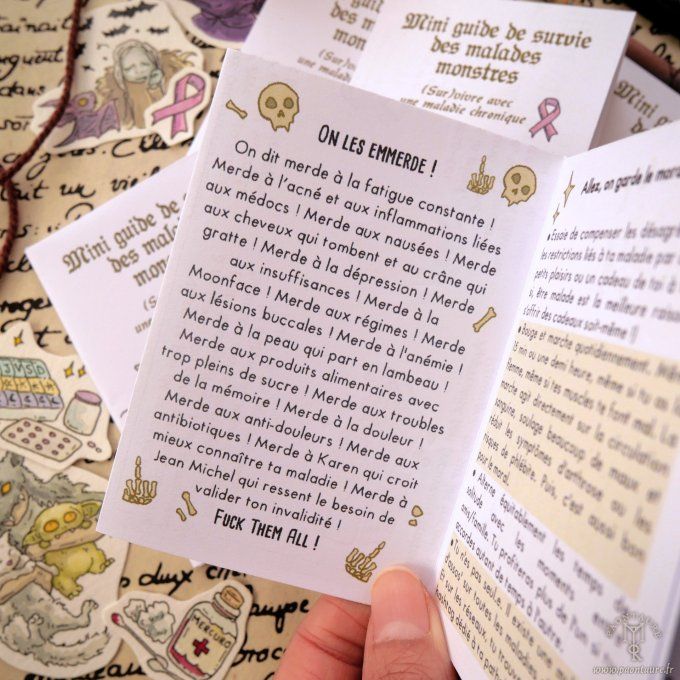 Mini guide de survie
des malades
monstres
(Sur)vivre avec
une maladie chronique
Mini guide de
des malad
monst
ON LES EMMERDE !
On dit merde à la fatigue constante !
Merde à l'acné et aux inflammations liées
aux médocs ! Merde aux nausées ! Merde
aux cheveux qui tombent et au crâne qui
gratte ! Merde à la dépression ! Merde
aux insuffisances ! Merde à la
Moonface ! Merde aux régimes ! Merde
aux lésions buccales ! Merde à l'anémie !
Merde à la peau qui part en lambeau !
Merde aux produits alimentaires avec
trop pleins de sucre ! Merde aux troubles
de la mémoire ! Merde à la douleur !
Merde aux anti-douleurs ! Merde aux
antibiotiques ! Merde à Karen qui croit
mieux connaître ta maladie ! Merde à
Jean Michel qui ressent le besoin de
valider ton invalidité !
FUCK THEM ALL !
Allez, on garde le mora
• Essaie de compenser les désagré
les restrictions liés à ta maladie par
petits plaisirs ou un cadeau de toi à
, être malade est la meilleure raiso
s'offrir des cadeaux soi-même !)
Bouge et marche quotidiennement.
15 min ou une demi heure, même si tu as
même si tes muscles te font mal. La
marche agit directement sur la circulation
sanguine, soulage beaucoup de maux et
réduit les symptômes d'arthrose ou les
risques de phlébite. Puis, c'est aussi bon
pour le moral.
• Alterne équitablement les temps de
solitude avec les moments en
amis/famille. Tu profiteras plus de l'un si
accordes autant de temps à l'autre.
• Tu n'es pas seule. Il existe une
sur toutes les maladies
Et sur les réseaux, tu trouv
dédié à ta path
JMSD
MERCURO
www.paontaure.fr